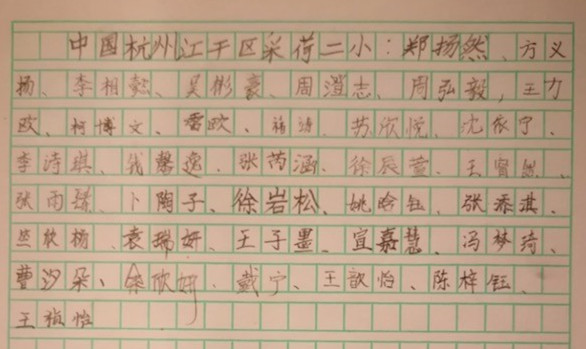 中国杭州江干区采荷二小：郑扬然、方义
扬、李相懿、吴彬豪、周澄志、周弘毅，王力
欧、柯博文、雷欧、、苏欣悦、沈依宁、
李诗琪、钱馨逸、张芮涵、徐辰萱、王
张雨、卜陶子、徐岩松、姚晗钰、张添淇、
杨、袁瑞妍、王子墨、宜嘉慧、冯梦琦、
曹沙朵、桑欣妍、戴宁、王歆怡、陈梓钰、
王祯怡